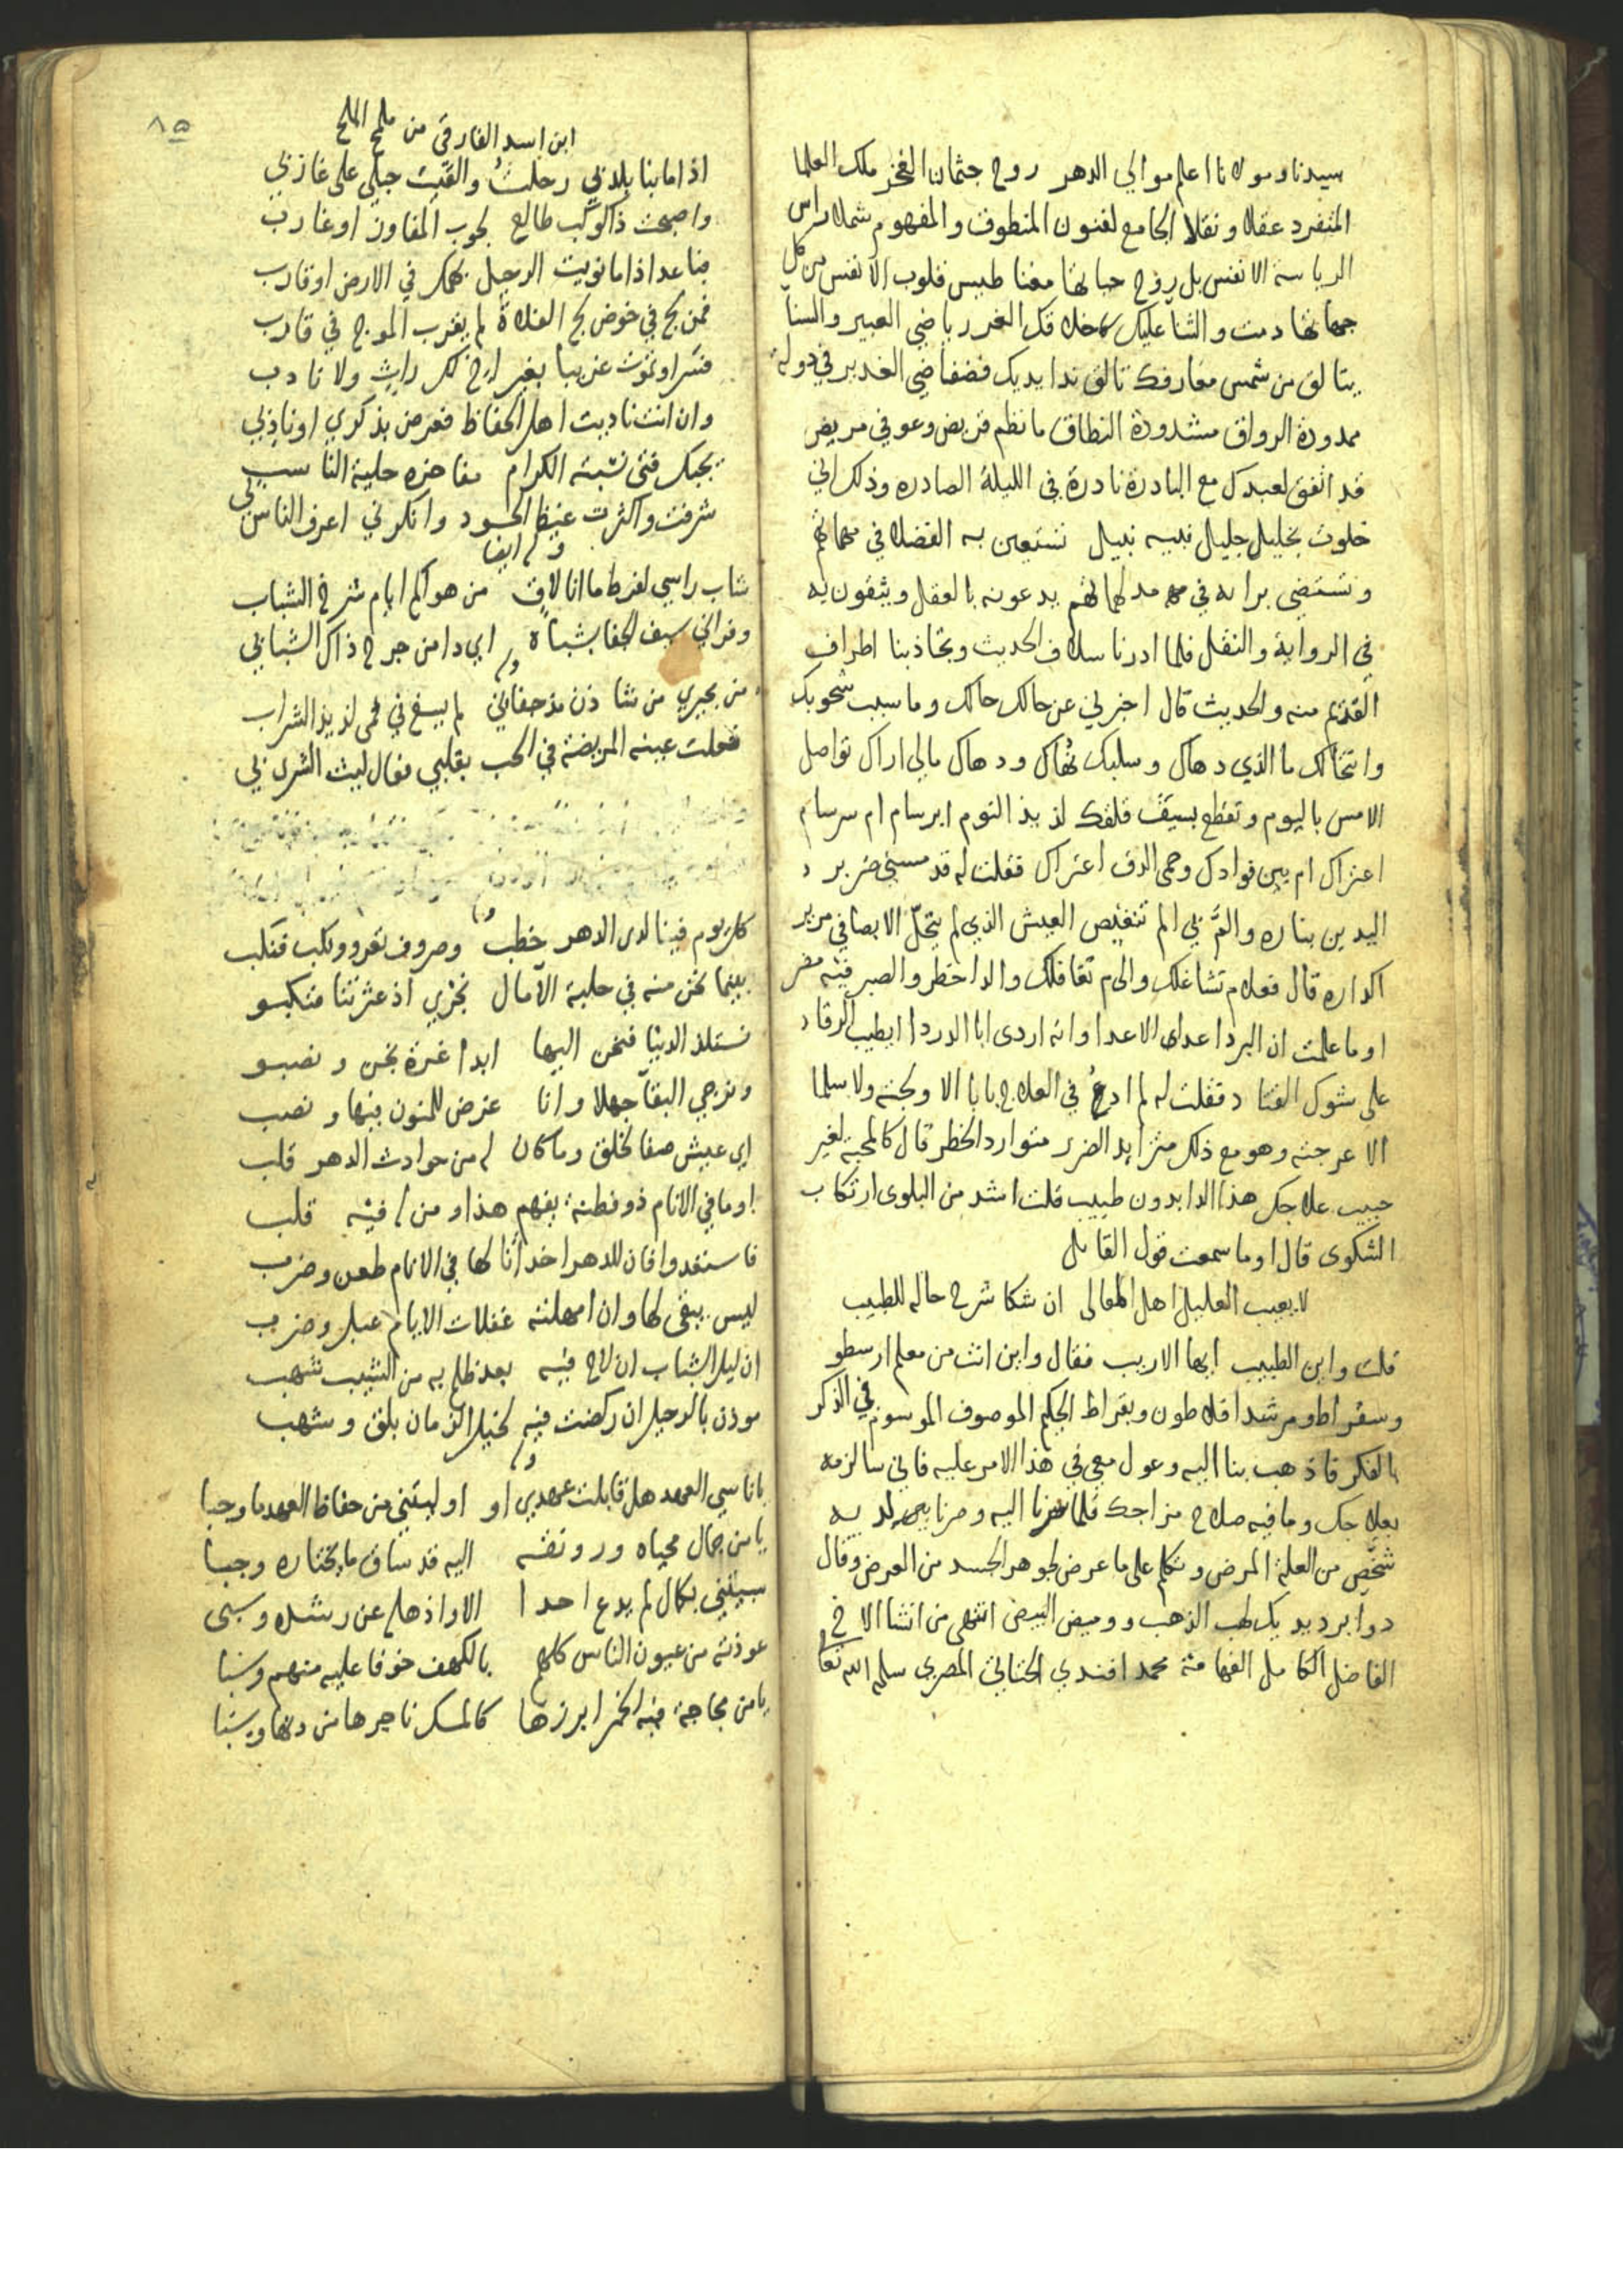 سيدنا ومولانا اعلم موالي الدهر روح جثمان الفخر ملك العلما
المتفرد عقلا ونقلا الجامع لفنون المنطوق والمفهوم شملا راس
الرياسة الانفس بل روح حياتها مغنا طيس قلوب الانفس من كل
جهاتها دمت والثنا عليك كاخلاقك الغر رياضي العبير والسنا
يتالق من شمس معارفك تالق ندا يديك فضفاضي الغدير في دولة
ممدودة الرواق مشدودة النطاق ما نظم قريض وعوفي مريض
قد اتفق لعبدك مع البادرة نادرة في الليلة الصادره وذلك اني
خلوت بخليل جليل نبيه نبيل تستعين به الفضلا في مهماتهم
وتستضي برايه في مدلهماتهم يدعونه بالعقل ويثقون به
في الرواية والنقل فلما ادرنا سلاف الحديث وتجاذبنا اطراف
القديم منه والحديث قال اخبرني عن حالك حالك وما سبب شحوبك
وانتحالك ما الذي دهاك وسلبك نهاك ودهاك مالي اراك تواصل
الامس باليوم وتقطع بسيف قلقك لذيذ النوم ابرسام ام سرسام
اعتراك ام بين فوادك وحمى الدق اعتراك فقلت له قد مسني ضرير د
اليدين بناره والم بي الم تنغيص العيش الذي لم يتحل الا بصافي مرير
اكداره قال فعلام تشاغلك والى م تغافلك والدا خطر والصبر فيه مضر
اوما علمت ان البرد اعدى الاعدا وانه اردى ابا الدردا ايطيب الرقاد
على شوك القتاد فقلت له لم ادع في العلاج بابا الا ولجته ولا سلما
الا عرجته وهو مع ذلك متزايد الضرر متوارد الخطر قال كالمحبة لغير
حبيب علاجك هذا الدا بدون طبيب قلت اشد من البلوى ارتكاب
الشكوى قال اوما سمعت قول القايل
لا يعيب العليل اهل المعالى ان شكا شرح حاله للطبيب
قلت واين الطبيب ايها الاريب فقال واين انت من معلم ارسطو
وسقراط ومرشد افلاطون وبقراط الحكيم الموصوف الموسوم في الذكر
بالفكر فاذهب بنا اليه وعول معي في هذا الامر عليه فاني سالزمه
بعلاجك وما فيه صلاح مزاجك فلما سرنا اليه وصرنا بين يديه
شخص من العلة المرض وتكلم على ما عرض لجوهر الجسد من العرض وقال
دوا برد يديك لهب الذهب ووميض البيض انتهى من انشا الاخ
الفاضل الكامل الفهامة محمد افندي الحناتي المصري سلمه الله تعا
٨٥
ابن اسد الفارقي من ملح الملح
اذا ما بنا بلد بي رحلت والقيت حبلي على غاربي
واصبحت ذا كوكب طالع لجوب المفاوز او غارب
فباعد اذا ما نويت الرحيل بهمك في الارض او قارب
فمن لج في خوض لج الفلاة لم يغرب الموج في قارب
فسر او تموت غريبا بغير اخ لك راث ولا نادب
وان انت ناديت اهل الحفاظ فعرض بذكري او ناد بي
يجبك فتى نشبته الكرام مفاخره حلية الناسب
شرفت واكثرت غيظ الحسود وانكرني اعرف الناس بي
وله ايضا
شاب راسي لفرط ما انا لاق من هواكم ايام شرخ الشباب
وفراني سيف الجفا بشباة اي دا من جرح ذاك الشبا بي
وله
من مجيري من شادن مذ جفاني لم يسغ في فمي لذيذ الشراب
فعلت عينه المريضة في الحب بقلبي فعال ليث الشرى بي
وله
كل يوم فينا لدى الدهر خطب وصروف تعرو ونكب فنكب
بينما نحن منه في حلبة الآمال نجري اذ عثرتنا فنكبو
نستلذ الدنيا فنحن اليها ابدا غرة نحن ونصبو
ونرجي البقا جهلا وانا غرض للمنون فيها ونصب
اي عيش صفا لخلق وما كان له من حوادث الدهر قلب
اوما في الانام ذو فطنة يفهم هذا ومن له فيه قلب
فاستعدوا فان للدهر احداثا لها في الانام طعن وضرب
ليس يبقى لها وان امهلته غفلات الايام عبل وضرب
ان ليل الشباب ان لاح فيه بعد ظلم به من الشيب شهب
موذن بالرحيل ان ركضت فيه لخيل الزمان بلق وشهب
وله
يا ناسي العهد هل قابلت عهدي او اوليتني من حفاظ العهد ما وجبا
يا من جمال محياه ورونقه اليه قد ساق ما يختاره وجبا
سبيتني بكمال لم يدع احدا الا واذهله عن رشده وسبى
عوذته من عيون الناس كلهم بالكهف خوفا عليه منهم وسبا
يا من مجاجة فيه الخمر ابرزها كالمسك تاجرها من دنها وسبا